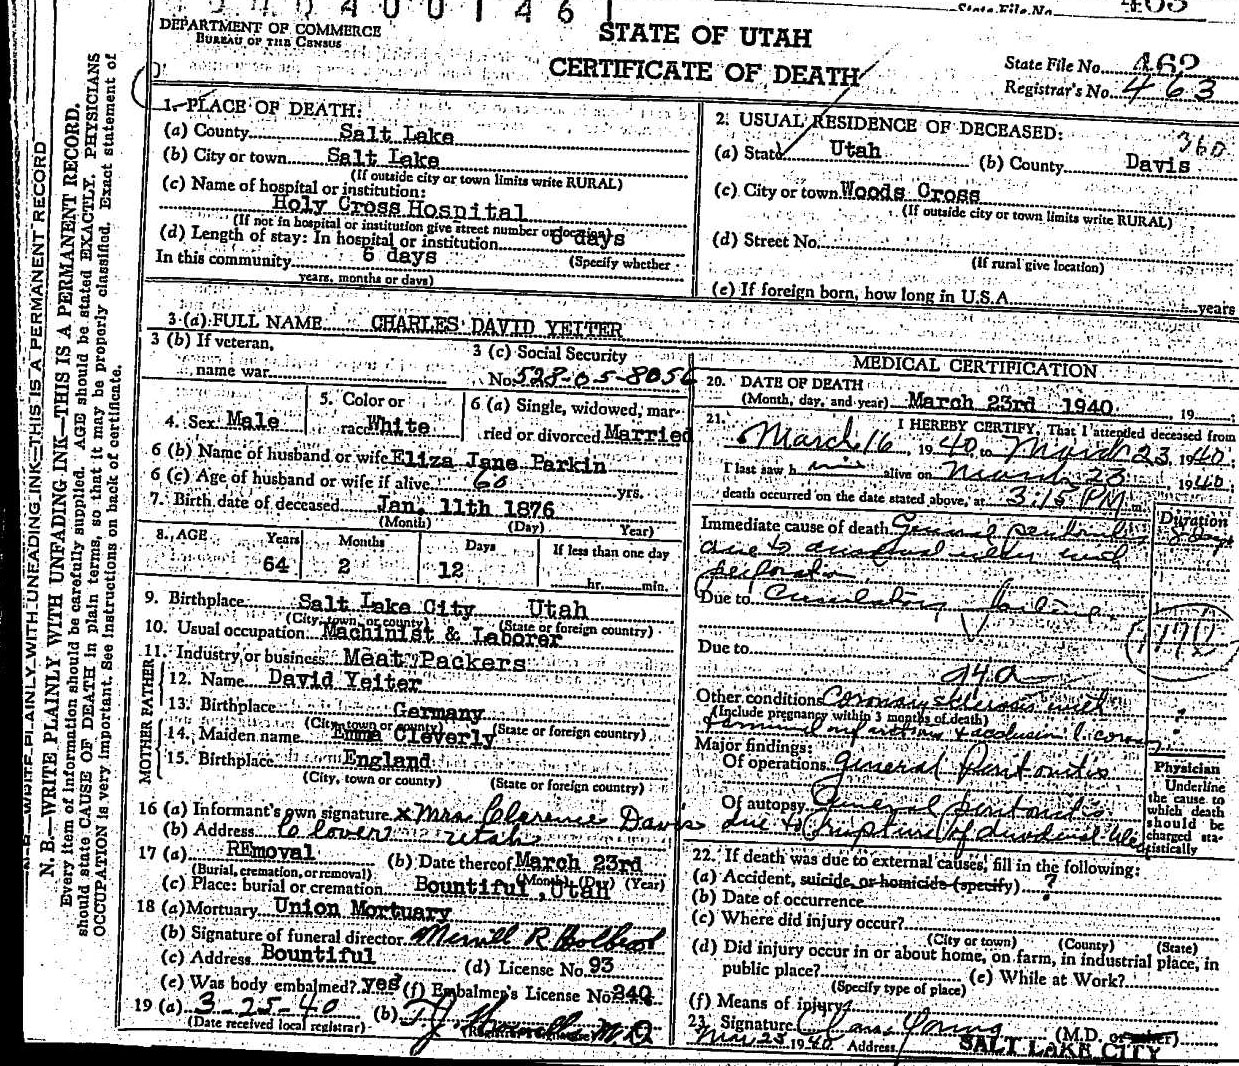 State File No. 463
DEPARTMENT OF COMMERCE
BUREAU OF THE CENSUS
STATE OF UTAH
CERTIFICATE OF DEATH
State File No. 462
Registrar's No. 463
1. PLACE OF DEATH:
(a) County Salt Lake
(b) City or town Salt Lake
(If outside city or town limits write RURAL)
(c) Name of hospital or institution:
Holy Cross Hospital
(If not in hospital or institution give street number or location)
(d) Length of stay: In hospital or institution 6 days
In this community 6 days (Specify whether
years, months or days)
2. USUAL RESIDENCE OF DECEASED:
360
(a) State Utah (b) County Davis
(c) City or town Woods Cross
(If outside city or town limits write RURAL)
(d) Street No.
(If rural give location)
(e) If foreign born, how long in U.S.A. years
3 (a) FULL NAME CHARLES DAVID YEITER
3 (b) If veteran,
name war
3 (c) Social Security
No. 528-05-8056
4. Sex Male
5. Color or
race White
6 (a) Single, widowed, mar-
ried or divorced Married
6 (b) Name of husband or wife Eliza Jane Parkin
6 (c) Age of husband or wife if alive 60 yrs.
7. Birth date of deceased Jan. 11th 1876
(Month) (Day) Year)
8. AGE Years Months Days If less than one day
64 2 12 hr. min.
9. Birthplace Salt Lake City Utah
(City, town, or county) (State or foreign country)
10. Usual occupation Machinist & Laborer
11. Industry or business Meat Packers
FATHER
12. Name David Yeiter
13. Birthplace Germany
(City, town or county) (State or foreign country)
MOTHER
14. Maiden name Emma Cleverly
15. Birthplace England
(City, town or county) (State or foreign country)
16 (a) Informant's own signature x Mrs. Clarence Davis
(b) Address Utah
17 (a) REmoval (b) Date thereof March 23rd
(Burial, cremation, or removal) (Month) (Day) (Year)
(c) Place: burial or cremation Bountiful, Utah
18 (a) Mortuary Union Mortuary
(b) Signature of funeral director Merrill R Holbrook
(c) Address Bountiful (d) License No. 93
(e) Was body embalmed? yes (f) Embalmer's License No. 240
19 (a) 3-25-40 (b) M.D.
(Date received local registrar) (Registrar's signature)
MEDICAL CERTIFICATION
20. DATE OF DEATH
(Month, day, and year) March 23rd 1940, 19
21. I HEREBY CERTIFY, That I attended deceased from
March 16, 1940, to March 23, 1940;
I last saw h im alive on March 23, 1940;
death occurred on the date stated above, at 3:15 PM m.
Duration
Immediate cause of death General peritonitis
due to duodenal ulcer with
perforation
Due to Circulatory failure
Due to
94a
Other conditions Coronary sclerosis with
(Include pregnancy within 3 months of death)
Major findings:
Of operations General Peritonitis
Of autopsy General peritonitis
due to rupture of duodenal ulcer
Physician
Underline
the cause to
which death
should be
charged sta-
tistically
22. If death was due to external causes, fill in the following:
(a) Accident, suicide, or homicide (specify) ?
(b) Date of occurrence
(c) Where did injury occur?
(City or town) (County) (State)
(d) Did injury occur in or about home, on farm, in industrial place, in
public place? (e) While at Work?
(Specify type of place)
(f) Means of injury
23. Signature Young (M.D. or other)
Mar 25, 1940 Address SALT LAKE CITY
N. B.—WRITE PLAINLY WITH UNFADING INK—THIS IS A PERMANENT RECORD
N. B.—WRITE PLAINLY WITH UNFADING INK—THIS IS A PERMANENT RECORD.
Every item of information should be carefully supplied. AGE should be stated EXACTLY. PHYSICIANS
should state CAUSE OF DEATH in plain terms, so that it may be properly classified. Exact statement of
OCCUPATION is very important. See instructions on back of certificate.